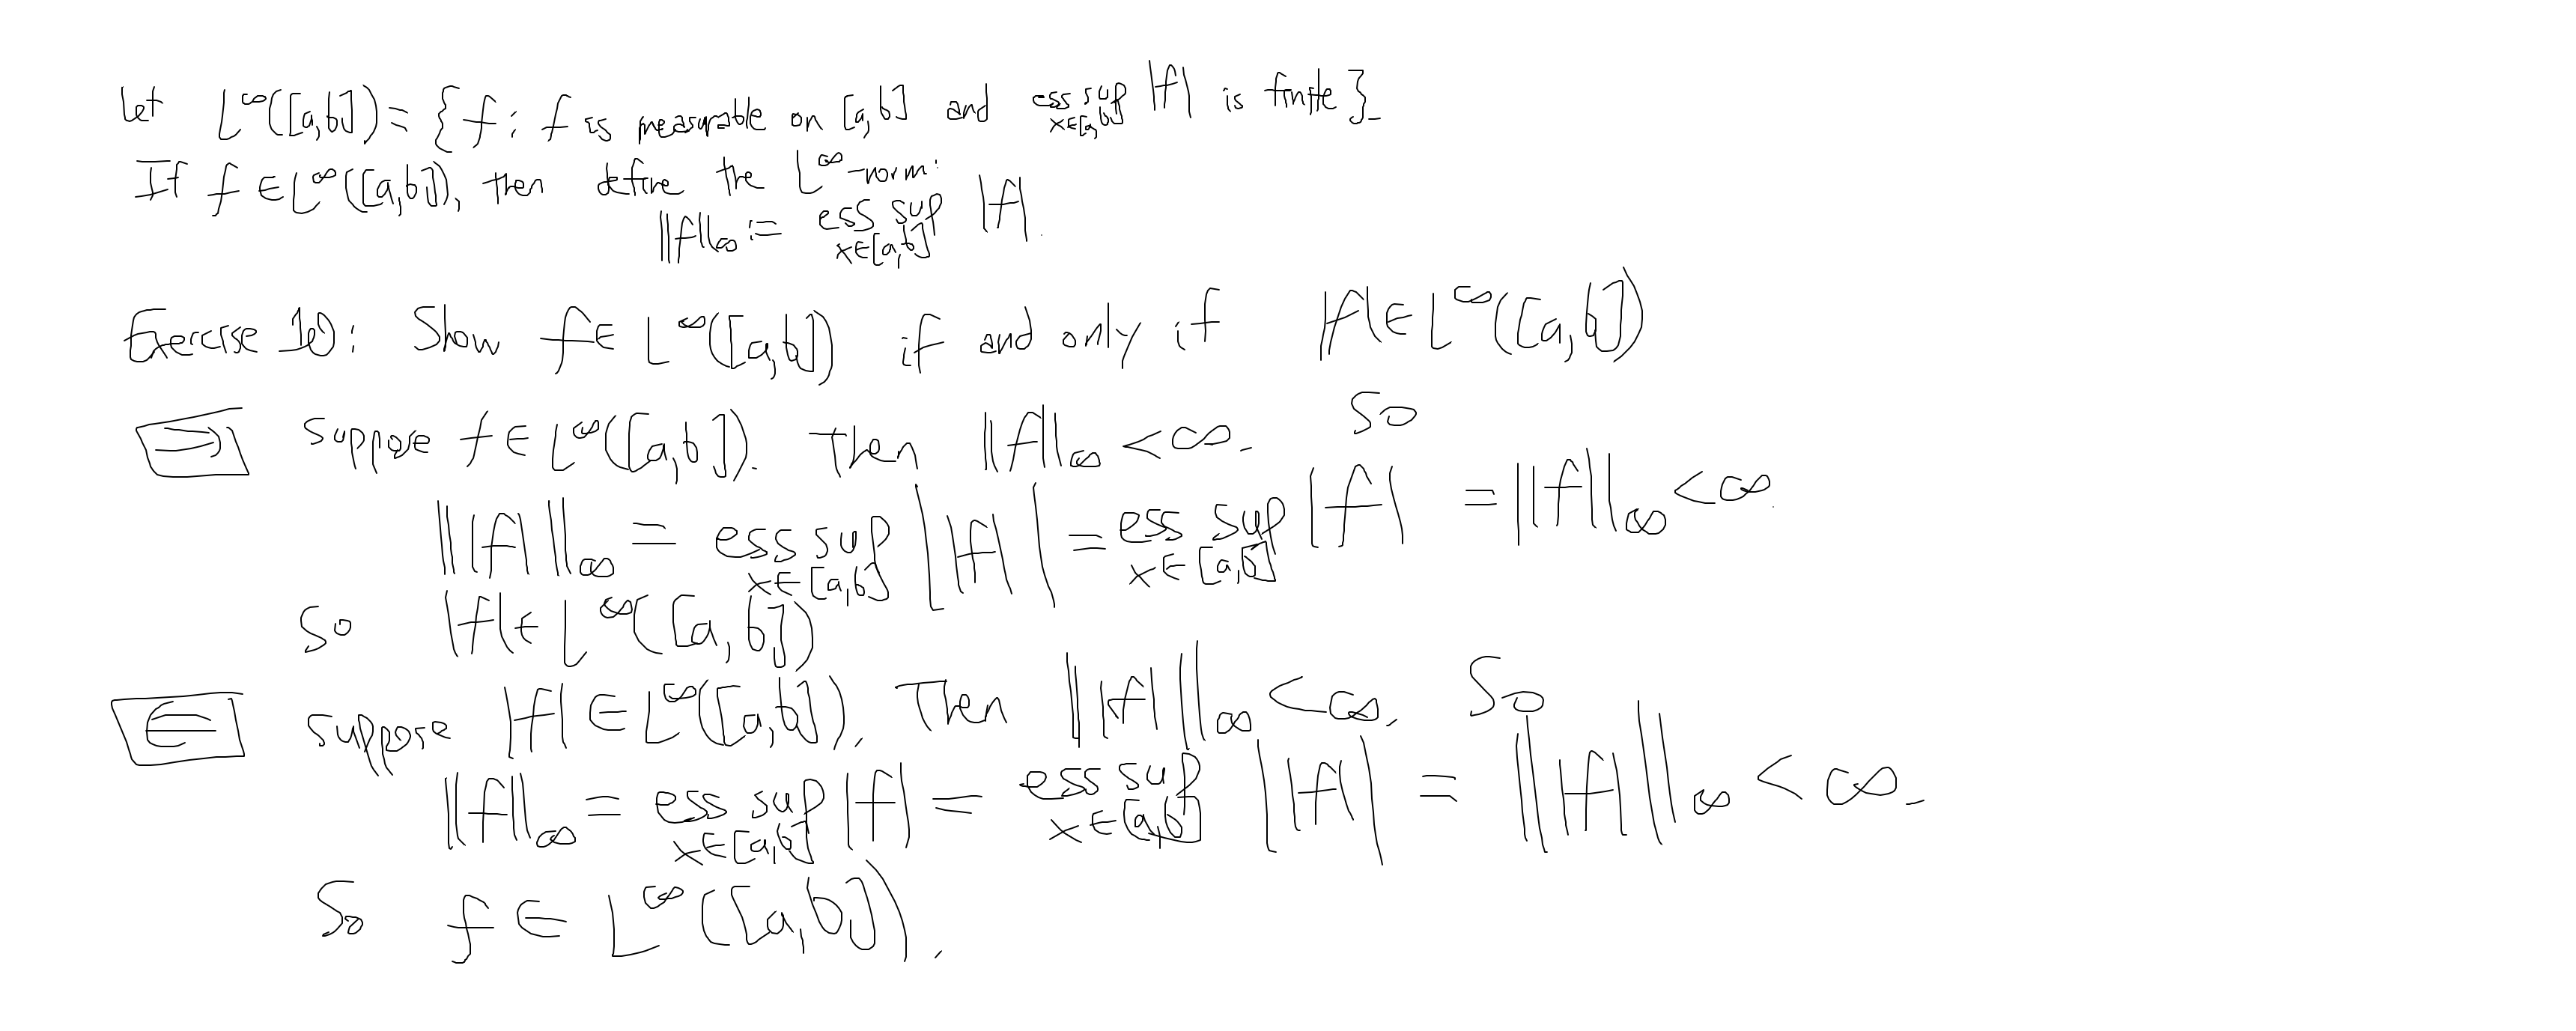 Let L^∞([a,b]) = {f : f is measurable on [a,b] and ess sup_{x∈[a,b]} |f| is finite}.
If f ∈ L^∞([a,b]), then define the L^∞-norm:
||f||_∞ := ess sup_{x∈[a,b]} |f|.
Exercise 10: Show f ∈ L^∞([a,b]) if and only if |f| ∈ L^∞([a,b])
⇒ suppose f ∈ L^∞([a,b]). Then ||f||_∞ < ∞. So
|| |f| ||_∞ = ess sup_{x∈[a,b]} | |f| | = ess sup_{x∈[a,b]} |f| = ||f||_∞ < ∞.
So |f| ∈ L^∞([a,b])
⇐ suppose |f| ∈ L^∞([a,b]). Then || |f| ||_∞ < ∞. So
||f||_∞ = ess sup_{x∈[a,b]} |f| = ess sup_{x∈[a,b]} | |f| | = || |f| ||_∞ < ∞.
So f ∈ L^∞([a,b]).